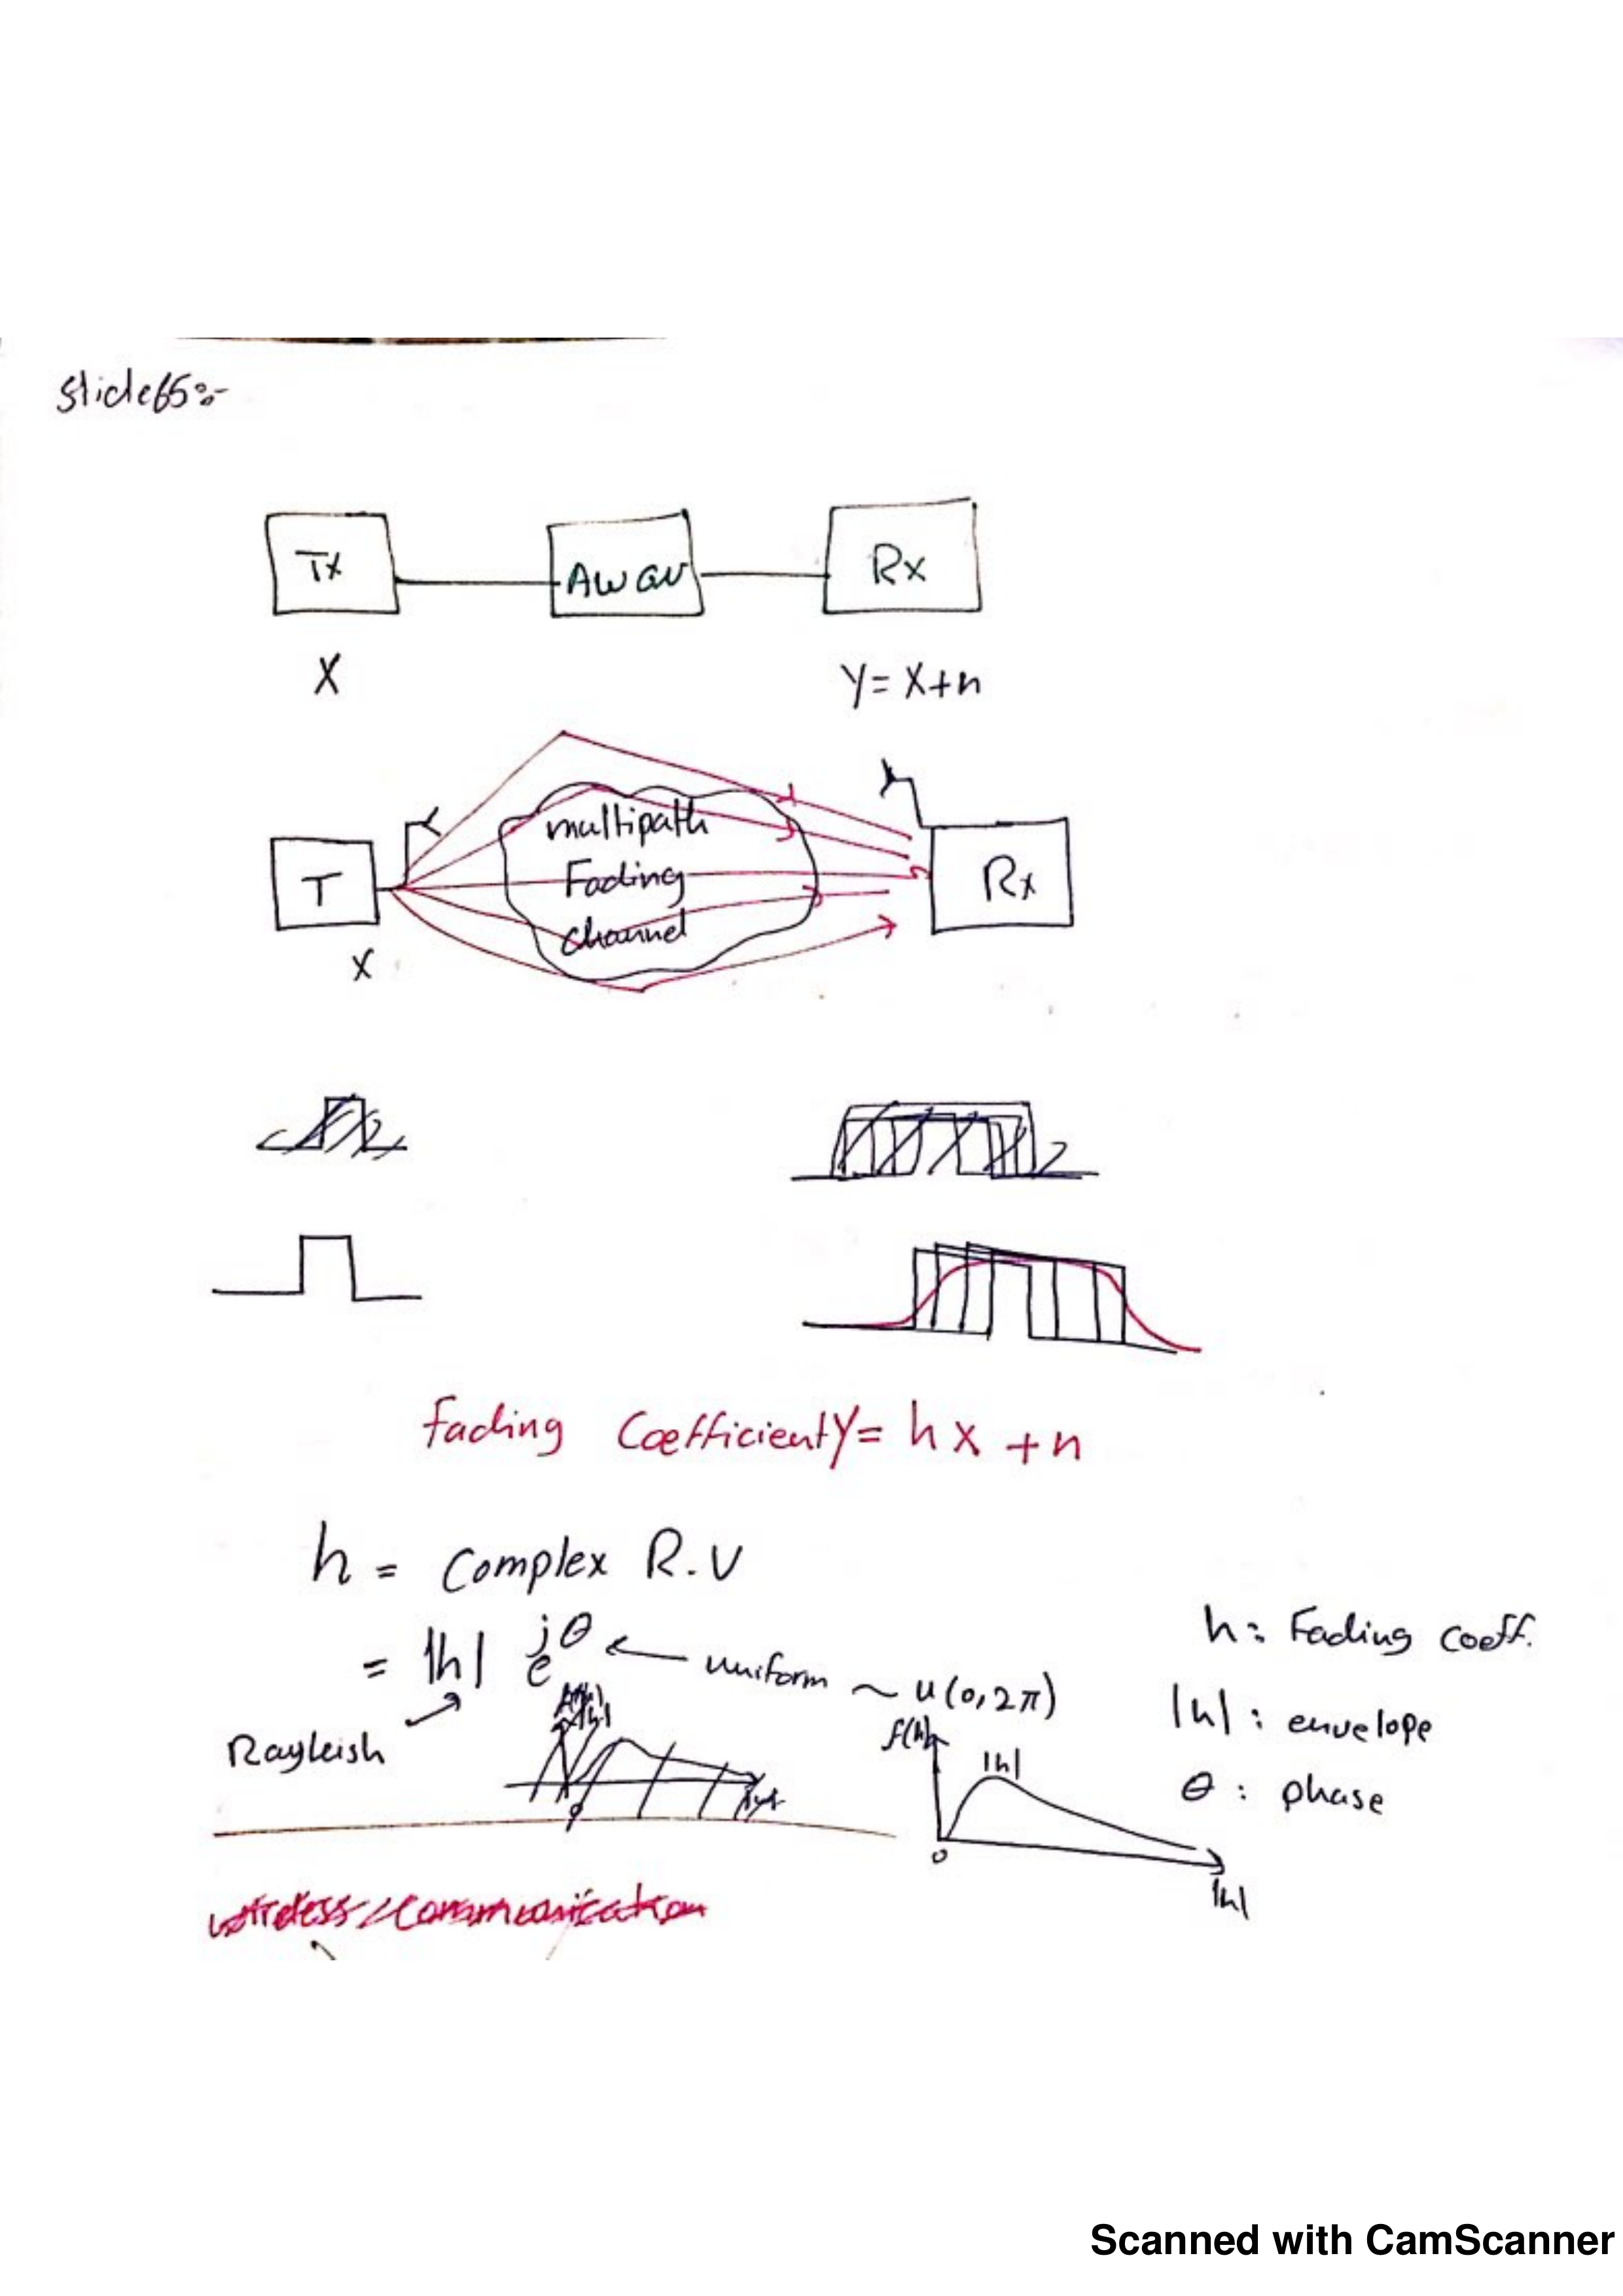 Slide65:-
Tx
AWGN
Rx
X
Y= X+n
multipath
Fading
channel
T
Rx
X
fading Coefficient Y= hx +n
h = Complex R.V
= |h| e^jθ ← uniform ~ u(0,2π)
Rayleish
h: Fading coeff.
|h| : envelope
θ : phase
f(h)
|h|
0
|h|
wireless communication
Scanned with CamScanner